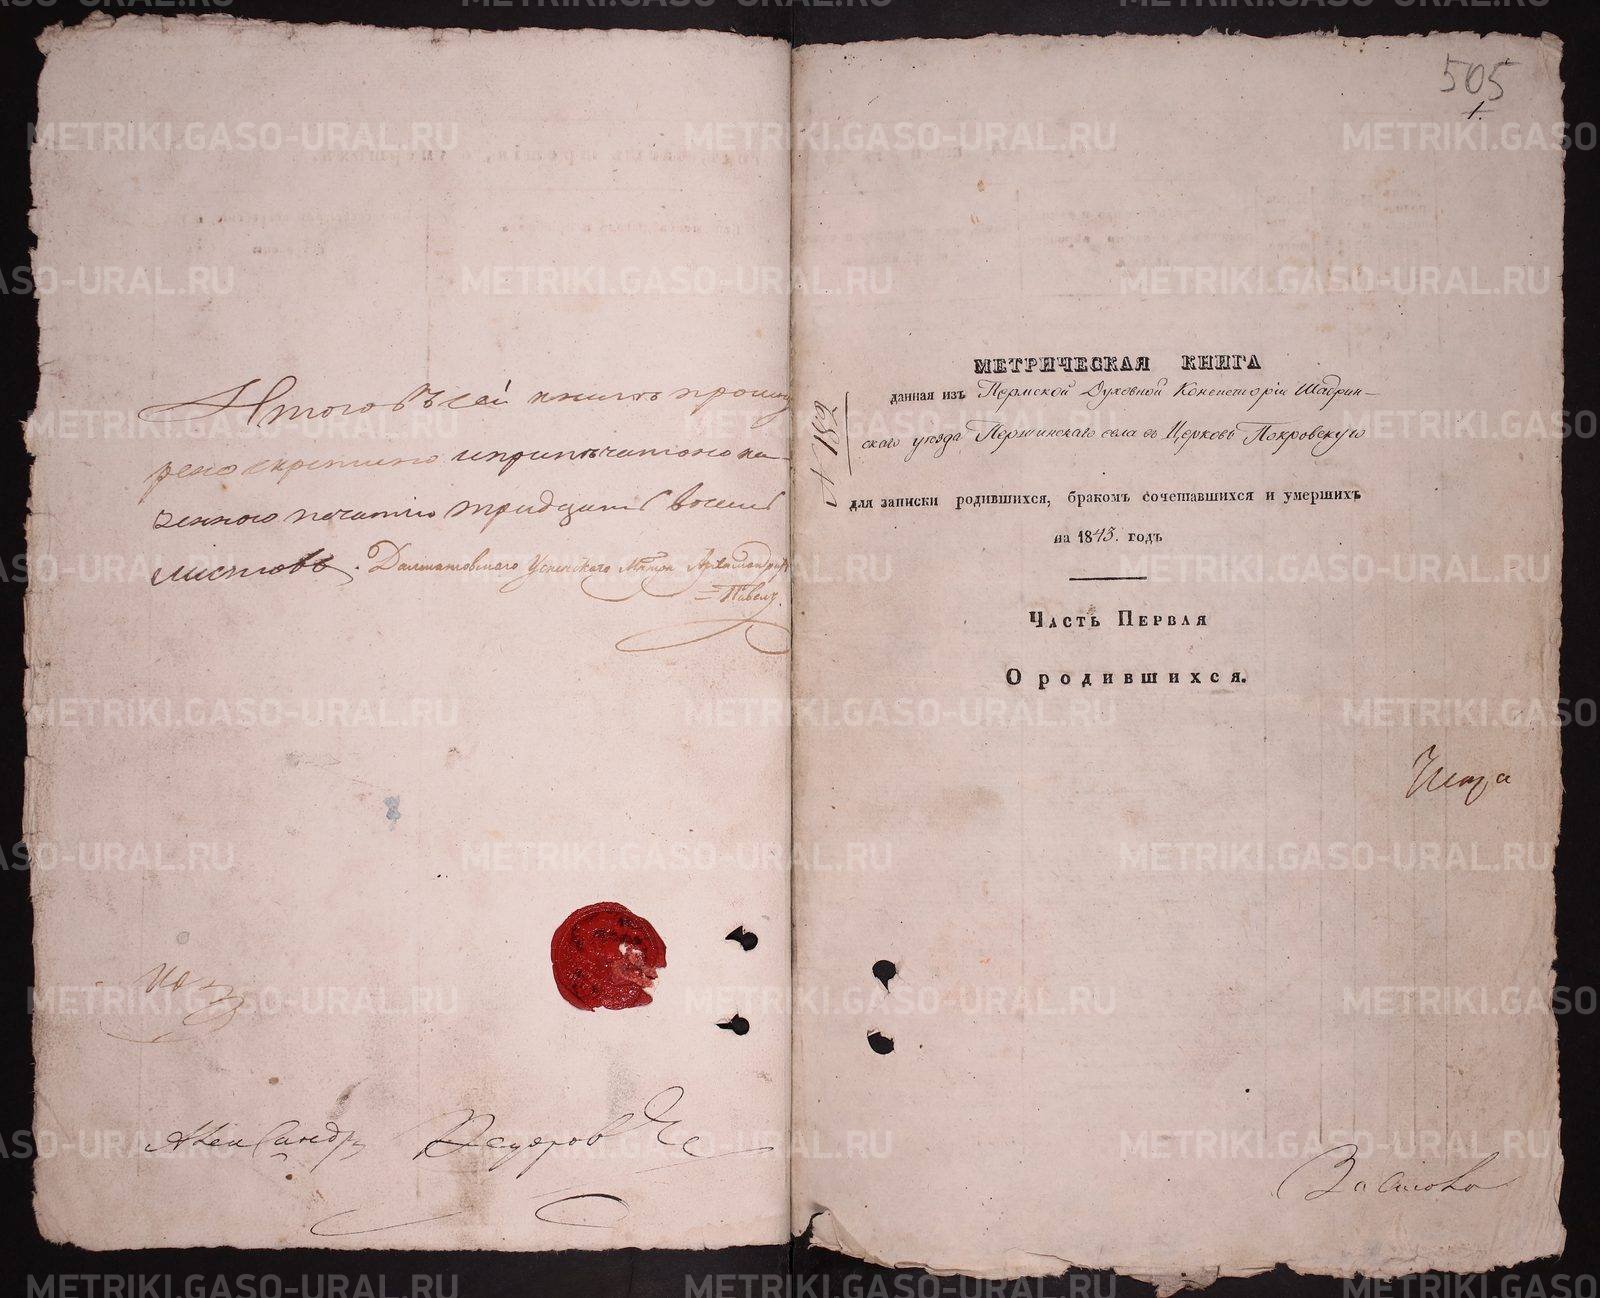 Итого въ сей книгѣ прошну
рено скреплено и припечатоно ка-
зенною печатію тридцать восемь
листовъ. Далматовскаго Успенскаго Мнтря Архимандритъ
Павелъ.
Александръ
505
1.
МЕТРИЧЕСКАЯ КНИГА
данная изъ Пермской Духовной Консисторіи Шадрин-
скаго уѣзда Першинскаго села въ Церковь Покровскую
для записки родившихся, бракомъ сочетавшихся и умершихъ
на 1843. годъ
Часть Первая
О родившихся.
METRIKI.GASO-URAL.RU